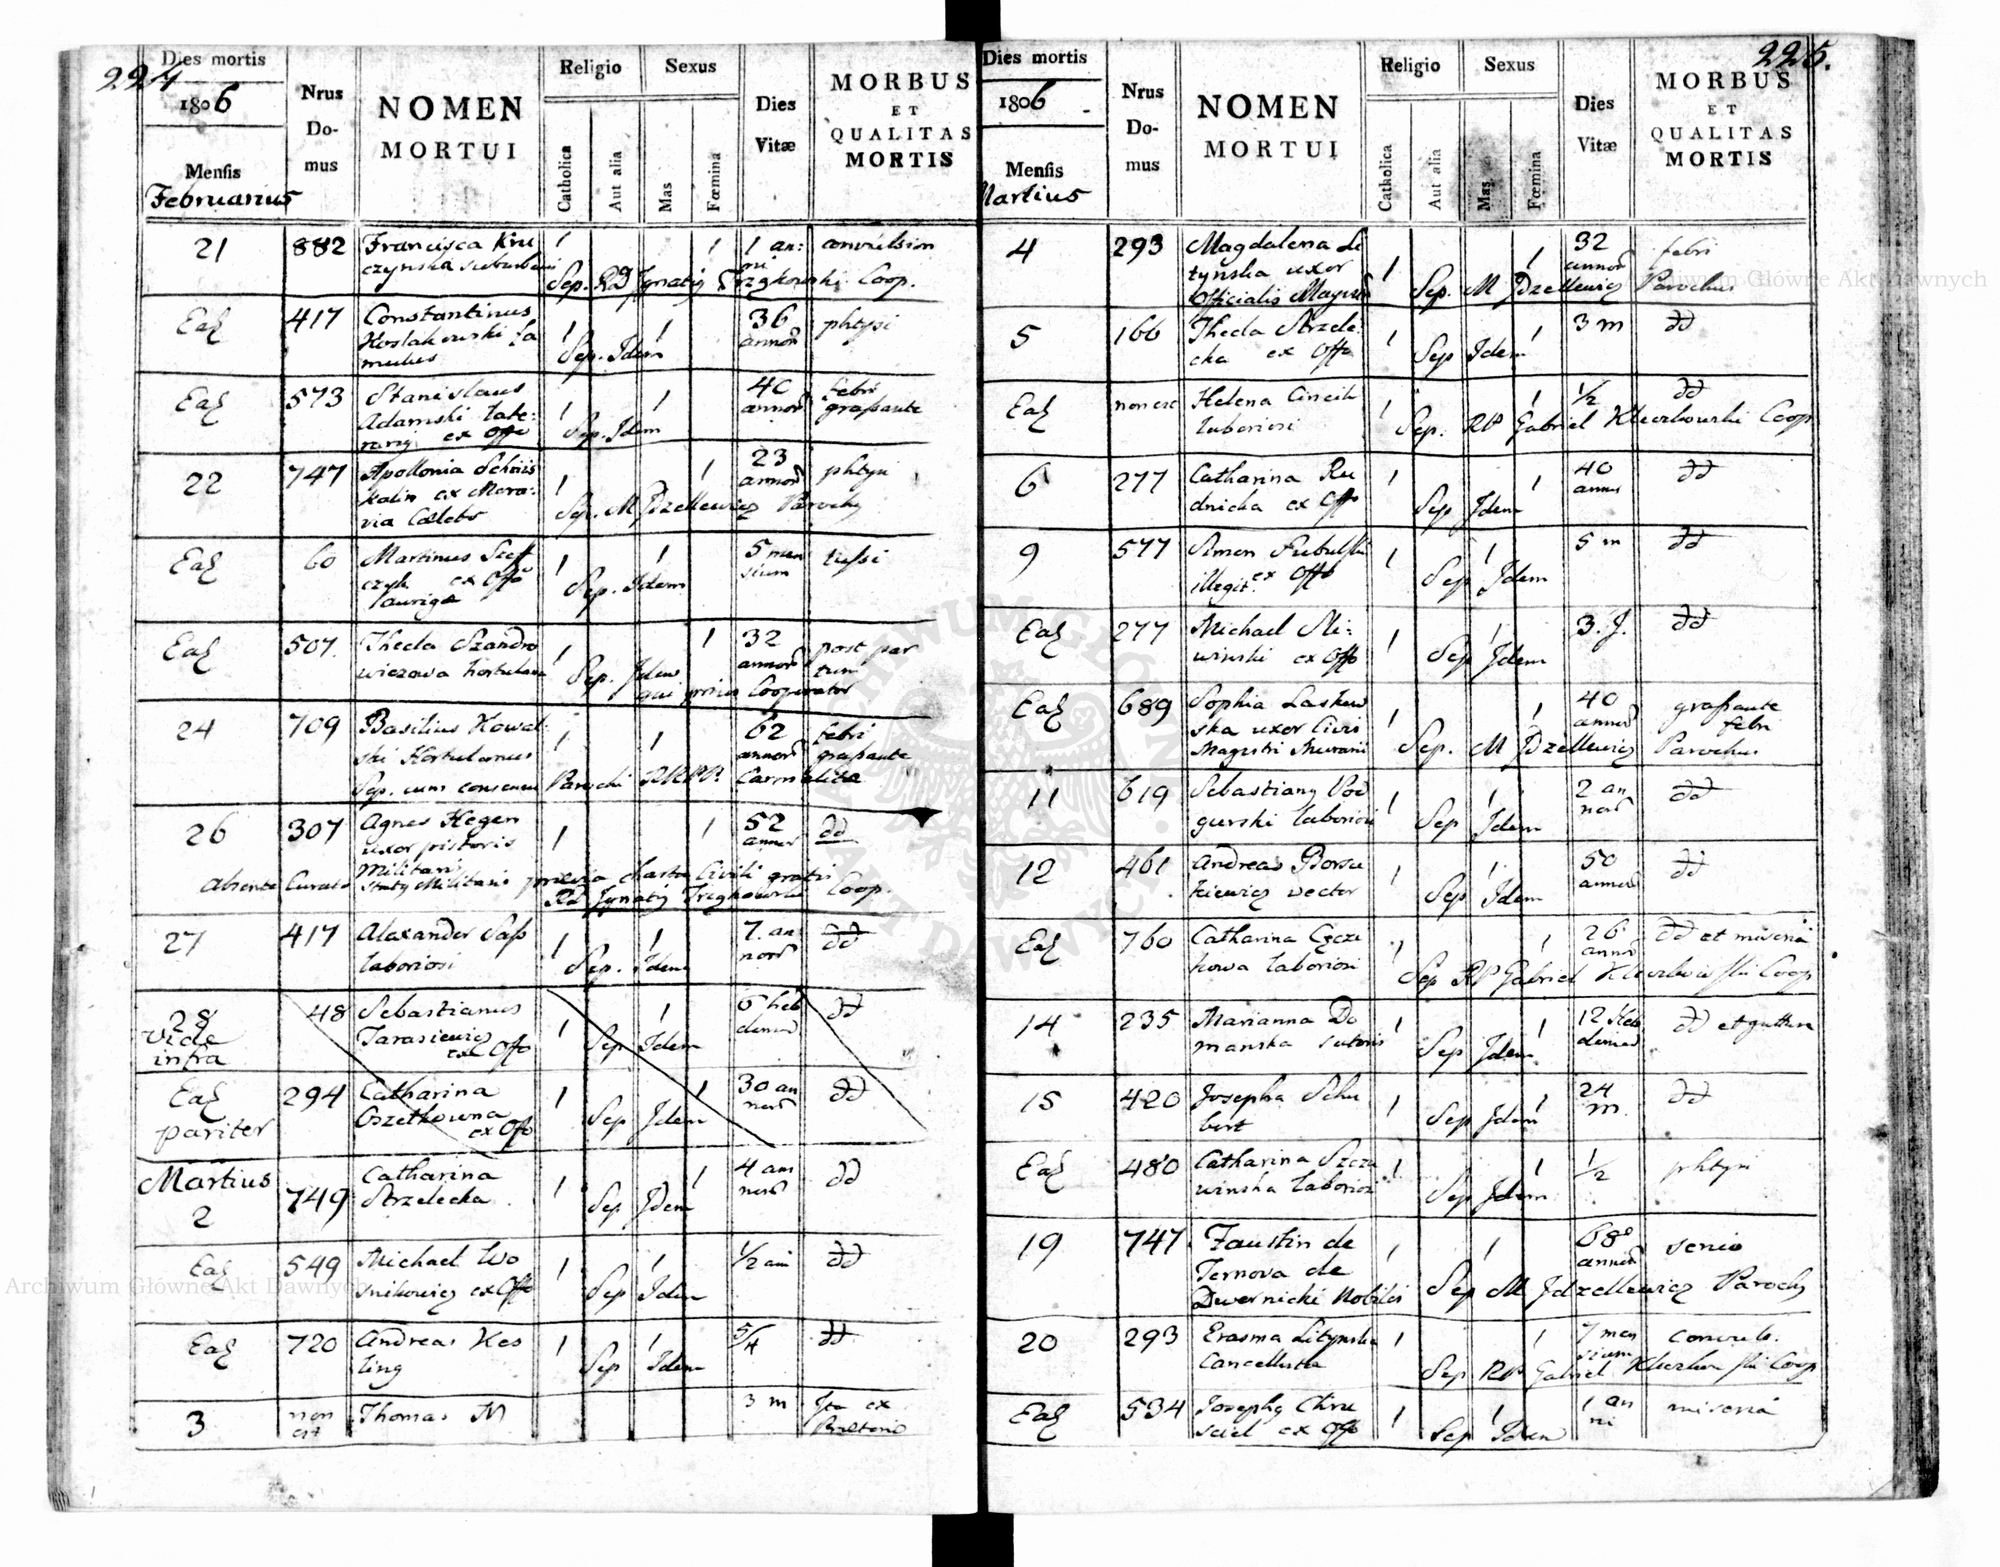 224
Dies mortis
1806
Mensis
Februarius
Nrus Do-mus
NOMEN
MORTUI
Religio
Catholica
Aut alia
Sexus
Mas
Fœmina
Dies
Vitæ
MORBUS
ET
QUALITAS
MORTIS
21 882 Francisca Kru 1 1 1 an:
czynska suburbani ni
Sep. Rd Ignatiq Coop.
Eaq 417 Constantinus 1 1 36 phtysi
Koslakowski fa annor
mulus Sep. Idem
Eaq 573 Stanislaus 1 1 40 febri
Adamski late: annor graßante
rarig ex Offo Sep. Idem
22 747 Apollonia 1 1 23 phtysi
ex Mora: annor
via Cœlebs Sep. M Parochq
Eaq 60 Martinus 1 1 5 men tussi
czyk ex Offo sium
auriga Sep. Idem
Eaq 507. Thecla Szandro 1 1 32 post par
wiczowa hortulana annor tum
Sep. Idem
qui prius Cooperator
24 709 Basilius Kowal 1 1 62 febri
ski Hortulanus annor graßante
Sep. cum consensu Parochi Carmelita
26 307 Agnes Hegen 1 1 52 dd
uxor pistoris annor
Militari
absente Curato Statq Militaris previa charta Civili gratis
Rd Ignatiq Coop.
27 417 Alexander Saß 1 1 7. an dd
laboriosi nor
Sep. Idem
28 48 Sebastianus 1 1 6 heb dd
vide Tarasiewicz domad
infra ex Offo Sep Idem
Eaq 294 Catharina 1 1 30 an dd
pariter Oszetkowna nor
ex Offo Sep Idem
Martius 749 Catharina 1 1 4 an dd
2 Strzelecka nor
Sep Idem
Eaq 549 Michael Wo 1 1 1/2 ani dd
snikowicz ex Offo Sep Idem
Eaq 720 Andreas Kes 1 1 5/4 dd
ling Sep Idem
3 non Thomas M 3 m Ita ex
est
225.
Dies mortis
1806
Mensis
Martius
Nrus Do-mus
NOMEN
MORTUI
Religio
Catholica
Aut alia
Sexus
Mas
Fœmina
Dies
Vitæ
MORBUS
ET
QUALITAS
MORTIS
4 293 Magdalena Li 1 1 32 febri
tynska uxor annor
Officialis Sep. M Parochus
5 166 Thecla Strzele 1 1 3 m dd
cka ex Offo Sep Idem
Eaq non est Helena 1 1 1/2 dd
laboriosi Sep. RP Gabriel Coop
6 277 Catharina Ru 1 1 40 dd
dnicka ex Offo annor
Sep Idem
9 577 Simon 1 1 5 m dd
illegit. ex Offo Sep Idem
Eaq 277 Michael Sli: 1 1 3. J. dd
winski ex Offo Sep Idem
Eaq 689 Sophia Laskow 1 1 40 graßante
ska uxor Civis annor febri
Magistri Murarii Sep. M Parochus
11 619 Sebastianq Pod 1 1 2 an dd
gurski laboriosi nor
Sep Idem
12 461 Andreas Borsu 1 1 50 dd
kiewicz vector annor
Sep Idem
Eaq 760 Catharina 1 1 26 dd et miseria
kowa laboriosi annor
Sep RP Gabriel Coop
14 235 Marianna Do 1 1 12 Heb dd et guttura
manska sutoris domad
Sep Idem
15 420 Josepha Schu 1 1 24 dd
bert m.
Sep Idem
Eaq 480 Catharina Szcza 1 1 1/2 phtysi
winska laboriosi Sep Idem
19 747 Faustin de 1 1 68 senio
Ternova de annor
Dwernicki Nobilis Sep M Parochq
20 293 Erasma Litynska 1 1 7 men convuls.
Cancellista sium
Sep RP Gabriel Coop
Eaq 534 Josephq Chru 1 1 1 an miseria
sciel ex Offo ni
Sep Idem
Archiwum Główne Akt Dawnych
Archiwum Główne Akt Dawnych
ARCHIWUM GŁÓWNE AKT DAWNYCH